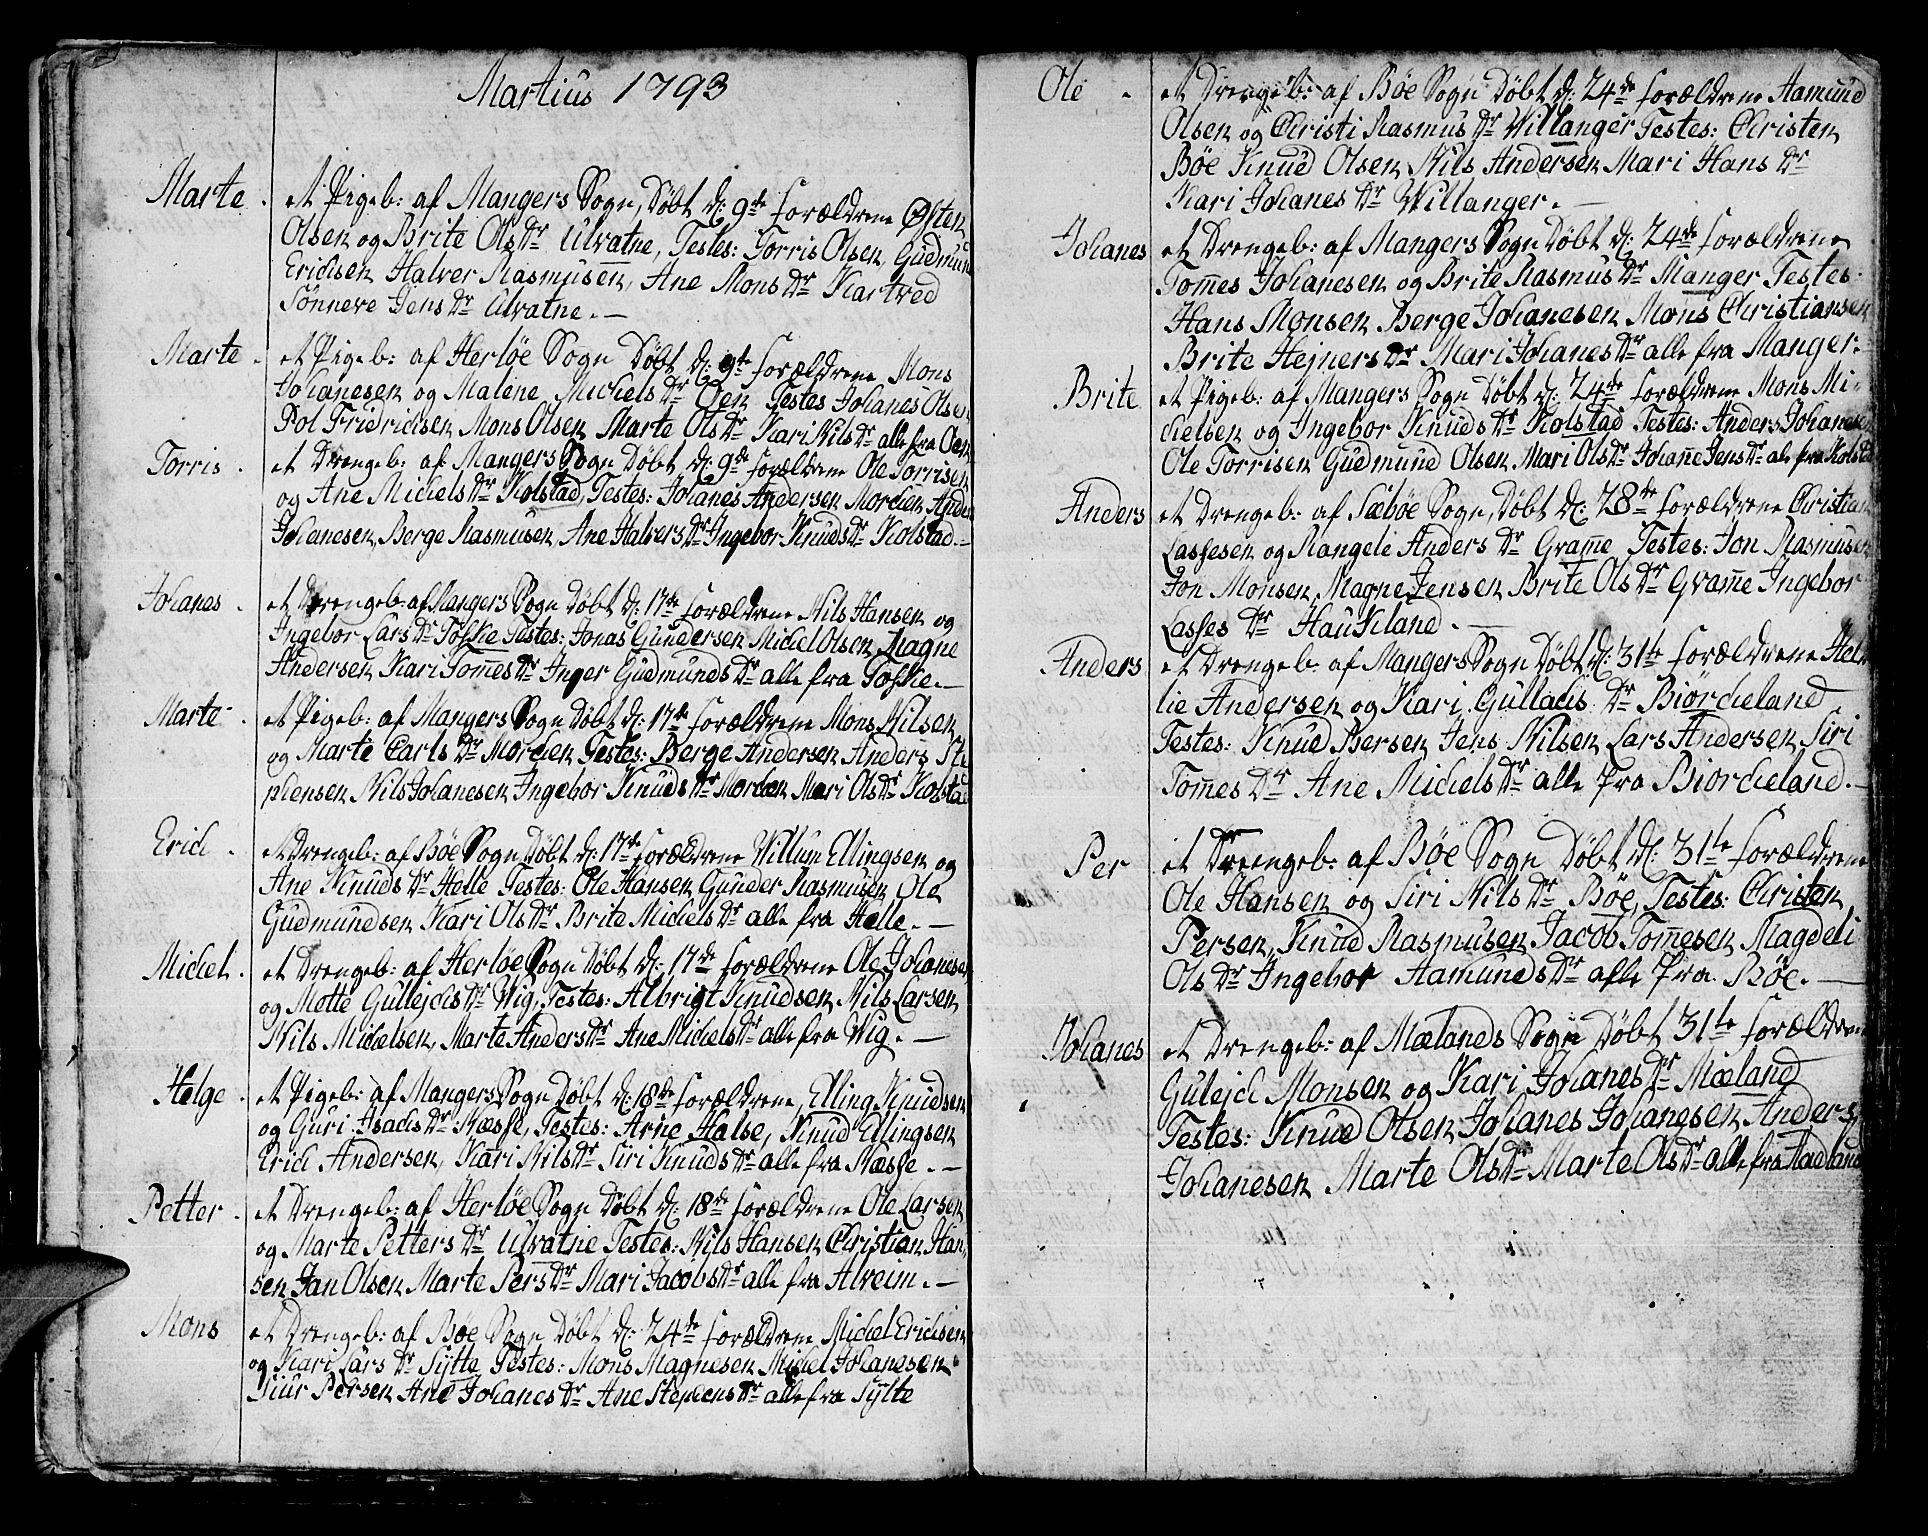 Martius 1793
Marte. et Pigeb: af Mangers Sogn, Døbt d: 9de forældrene Østen
Olsen og Brite Ols Dr Ulvatne, Testes: Torris Olsen, Gudmund
Erichsen Halver Rasmusen, Ane Mons Dr Kartved
Sønneve Jens Dr Ulvatne. —
Marte. et Pigeb: af Herløe Sogn Døbt d: 9de forældrene Mons
Johanesen og Malene Michels Dr Oen Testes Johanes Olsen
Pol Fridrichsen Mons Olsen Marte Ols Dr Kari Nils Dr alle fra Oen
Torris. et Drengeb: af Mangers Sogn Døbt d: 9de forældrene Ole Torrisen
og Ane Michels Dr Kolstad, Testes: Johanes Andersen Morchen, Anders
Johanesen, Berge Rasmusen, Ane Halvers Dr Ingebor Knuds Dr Kolstad. —
Johanes. et Drengeb: af Mangers Sogn Døbt d: 17de forældrene Nils Hansen og
Ingebor Lars Dr Toske Testes: Jonas Gundersen Michel Olsen Magne
Andersen Kari Tom̄es Dr Inger Gudmunds Dr alle fra Toske. —
Marte. et Pigeb: af Mangers Sogn Døbt d: 17de forældrene Mons Nilsen
og Marte Carls Dr Morchen Testes: Berge Andersen Anders Ste
phensen Nils Johanesen Ingebor Knuds Dr Morchen Mari Ols Dr Kolstad
Erich. et Drengeb: af Bøe Sogn Døbt d: 17de forældrene Villum Ellingsen og
Ane Knuds Dr Helle Testes: Ole Hansen Gunder Rasmusen Ole
Gudmundsen Kari Ols Dr Brite Michels Dr alle fra Helle. —
Michel. et Drengeb: af Herløe Sogn Døbt d: 17de forældrene Ole Johanesen
og Motte Gullejchs Dr Wig, Testes: Albrigt Knudsen Nils Larsen
Nils Michelsen, Marte Anders Dr Ane Michels Dr alle fra Wig. —
Helge. et Pigeb: af Mangers Sogn Døbt d: 18de forældrene, Elling Knudsen
og Guri Isachs Dr Næsse, Testes: Arne Halse, Knud Ellingsen
Erich Andersen, Kari Nils Dr Siri Knuds Dr alle fra Næsse. —
Petter. et Drengeb: af Herløe Sogn Døbt d: 18de forældrene Ole Larsen
og Marte Petters Dr Ulvatne Testes: Nils Hansen Christian Han
sen Jan Olsen Marte Pers Dr Mari Jacobs Dr alle fra Alveim. —
Mons et Drengeb: af Bøe Sogn Døbt d: 24de forældrene Michel Erichsen
og Kari Lars Dr Sylte Testes: Mons Magnesen Michel Johanesen
Siur Persen Ane Johanes Dr Ane Stephens Dr alle fra Sylte
Ole. et Drengeb: af Bøe Sogn Døbt d: 24de forældrene Aamund
Olsen og Christi Rasmus Dr Willanger Testes: Christen
Bøe Knud Olsen Nils Andersen Mari Hans Dr
Kari Johanes Dr Willanger. —
Johanes et Drengeb: af Mangers Sogn Døbt d: 24de forældrene
Tom̄es Johanesen og Brite Rasmus Dr Manger Testes:
Hans Monsen Berge Johanesen Mons Christiansen
Brite Hejners Dr Mari Johanes Dr alle fra Manger.
Brite et Pigeb: af Mangers Sogn Døbt d: 24de forældrene Mons Mi-
chelsen og Ingebor Knuds Dr Kolstad Testes: Anders Johanesen
Ole Torrisen Gudmund Olsen Mari Ols Dr Johan̄e Jens Dr ale fra Kolstad
Anders et Drengeb: af Sæbøe Sogn, Døbt d: 28de forældrene Christian
Lassesen og Rangeli Anders Dr Gram̄e Testes: Jon Rasmusen
Jon Monsen Magne Jensen Brite Ols Dr Gram̄e Ingebor
Lasses Dr Haukeland. —
Anders et Drengeb: af Mangers Sogn Døbt d: 31te forældrene Hel
lie Andersen og Kari Gullachs Dr Biørcheland
Testes: Knud Bersen Jens Nilsen Lars Andersen Siri
Tom̄es Dr Ane Michels Dr alle fra Biørcheland. —
Per et Dreengeb: af Bøe Sogn Døbt d: 31te forældrene
Ole Hansen og Siri Nils Dr Bøe, Testes: Christen
Persen, Knud Rasmusen Jacob Tom̄esen Magdeli
Ols Dr Ingebor Aamunds Dr alle fra Bøe. —
Johanes et Drengeb: af Mælands Sogn Døbt 31te forældrene
Gulejch Monsen og Kari Johanes Dr Mæland
Testes: Knud Olsen Johanes Johanesen Anders
Johanesen Marte Ols Dr Marte Ols Dr alle fra Aadland